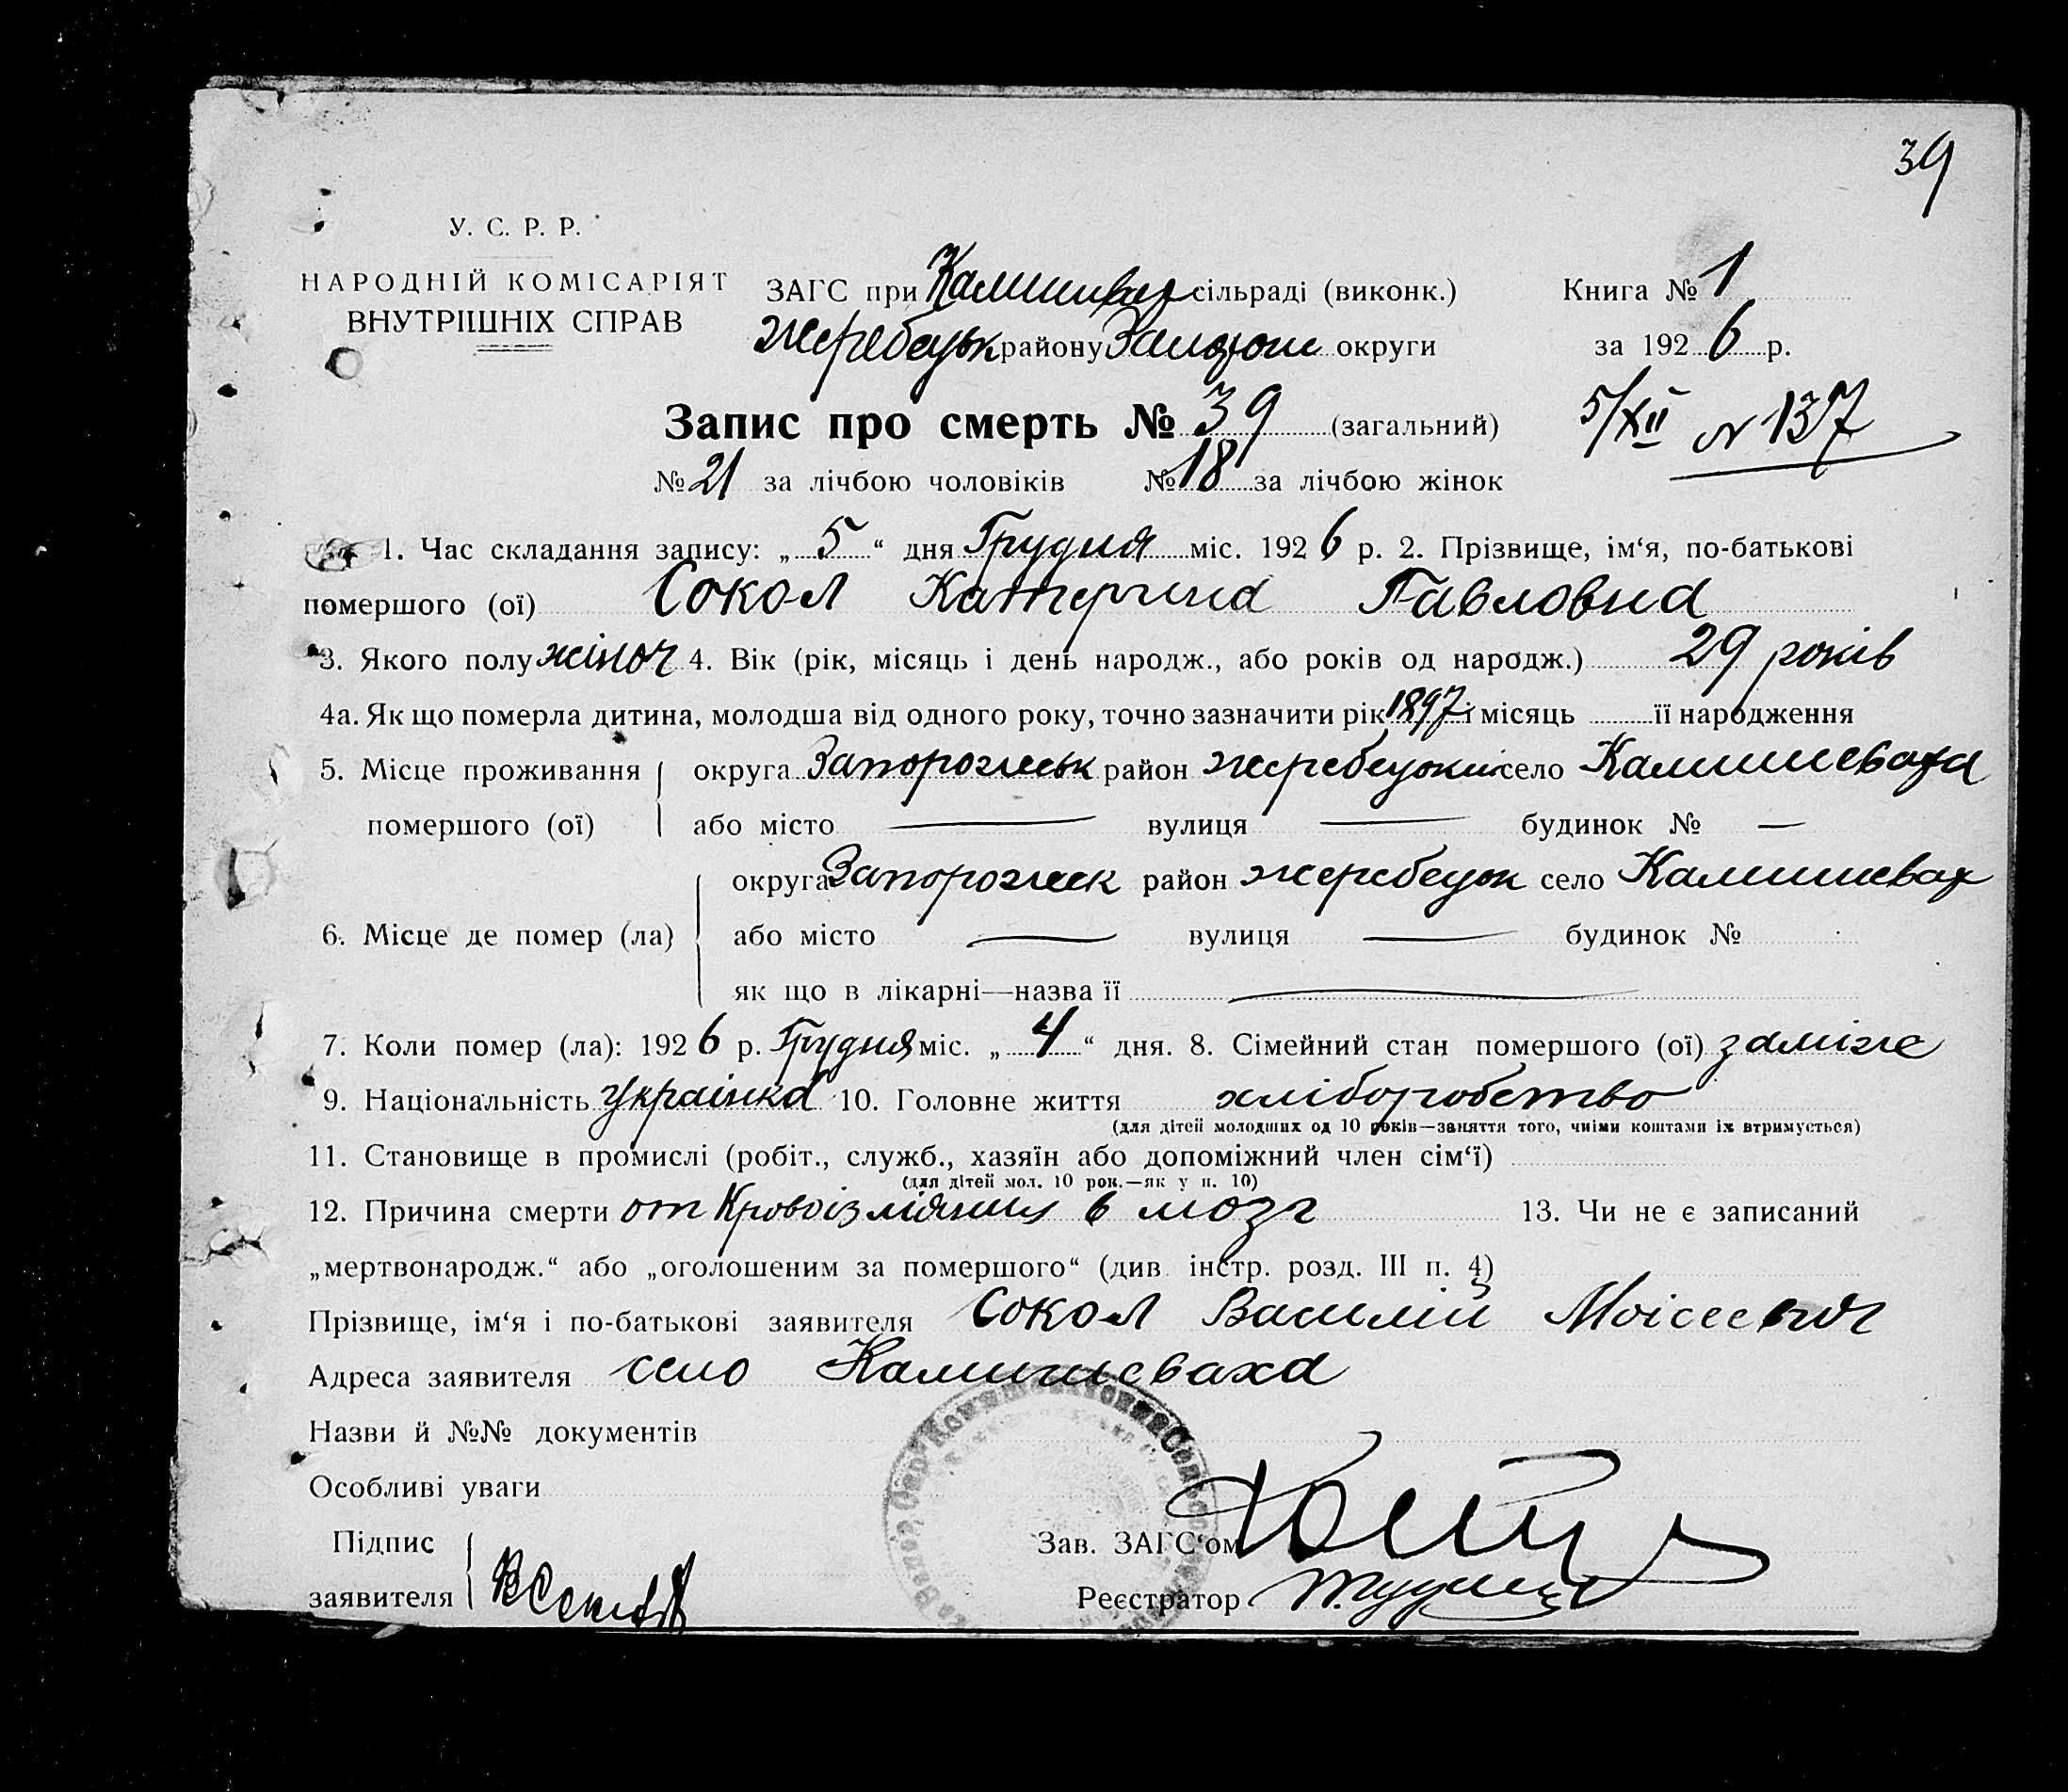 39
У. С. Р. Р.
НАРОДНІЙ КОМІСАРІЯТ
ВНУТРІШНІХ СПРАВ
ЗАГС при Камишвах сільраді (виконк.)
Книга № 1
Жеребецьк району Запорож округи
за 1926 р.
Запис про смерть № 39 (загальний)
5/XII N 137
№ 21 за лічбою чоловіків № 18 за лічбою жінок
1. Час складання запису: „5“ дня Грудня міс. 1926 р. 2. Прізвище, ім‘я, по-батькові
помершого (ої) Сокол Катерина Павловна
3. Якого полу жіноч 4. Вік (рік, місяць і день народж., або років од народж.) 29 років
4а. Як що померла дитина, молодша від одного року, точно зазначити рік 1897 і місяць її народження
5. Місце проживання помершого (ої)
округа Запорожськ район жеребецький село Камишеваха
або місто — вулиця — будинок № —
6. Місце де помер (ла)
округа Запорожск район жеребецьк село Камишевах
або місто — вулиця — будинок №
як що в лікарні—назва її —
7. Коли помер (ла): 1926 р. Грудня міс. „4“ дня. 8. Сімейний стан помершого (ої) заміже
9. Національність Українка 10. Головне життя хліборобство
(для дітей молодших од 10 років—заняття того, чиїми коштами їх втримується)
11. Становище в промислі (робіт., служб., хазяїн або допоміжний член сім‘ї)
(для дітей мол. 10 рок.—як у п. 10)
12. Причина смерти от Кровоізліяния в мозг 13. Чи не є записаний
„мертвонародж.“ або „оголошеним за помершого“ (див. інстр. розд. III п. 4)
Прізвище, ім‘я і по-батькові заявителя Сокол Василій Моісеевич
Адреса заявителя село Камишеваха
Назви й №№ документів
Особливі уваги
Підпис заявителя В Сокол
Зав. ЗАГС‘ом
Реєстратор